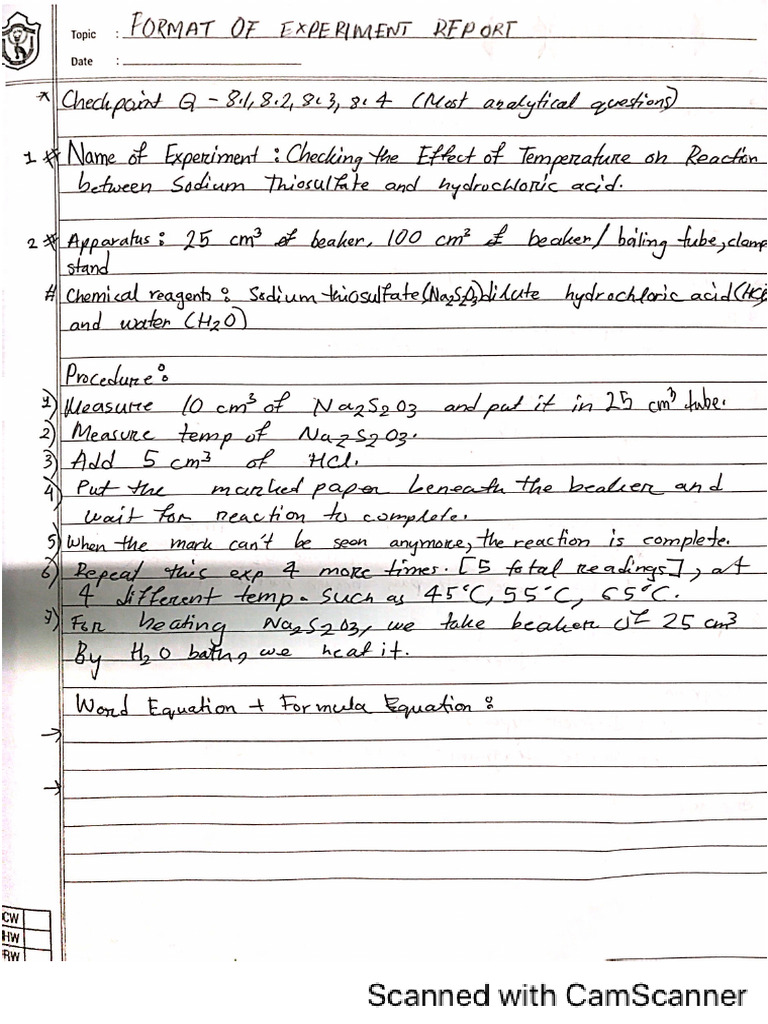 Topic : FORMAT OF EXPERIMENT REPORT
Date :
* Checkpoint Q - 8.1, 8.2, 8.3, 8.4 (Most analytical questions)
1 # Name of Experiment : Checking the Effect of Temperature on Reaction
between Sodium Thiosulfate and hydrochloric acid.
2 # Apparatus : 25 cm³ of beaker, 100 cm³ of beaker/ boiling tube, clamp
stand
# Chemical reagents : Sodium thiosulfate (Na2S2O3) dilute hydrochloric acid (HCl)
and water (H2O)
Procedure :
1) Measure 10 cm³ of Na2S2O3 and put it in 25 cm³ tube.
2) Measure temp of Na2S2O3.
3) Add 5 cm³ of HCl.
4) Put the marked paper beneath the beaker and
wait for reaction to complete.
5) When the mark can't be seen anymore, the reaction is complete.
6) Repeat this exp 4 more times. [5 total readings], at
4 different temp. Such as 45°C, 55°C, 65°C.
7) For heating Na2S2O3, we take beaker of 25 cm³
By H2O bath, we heat it.
Word Equation + Formula Equation :
→
→
CW
HW
RW
Scanned with CamScanner